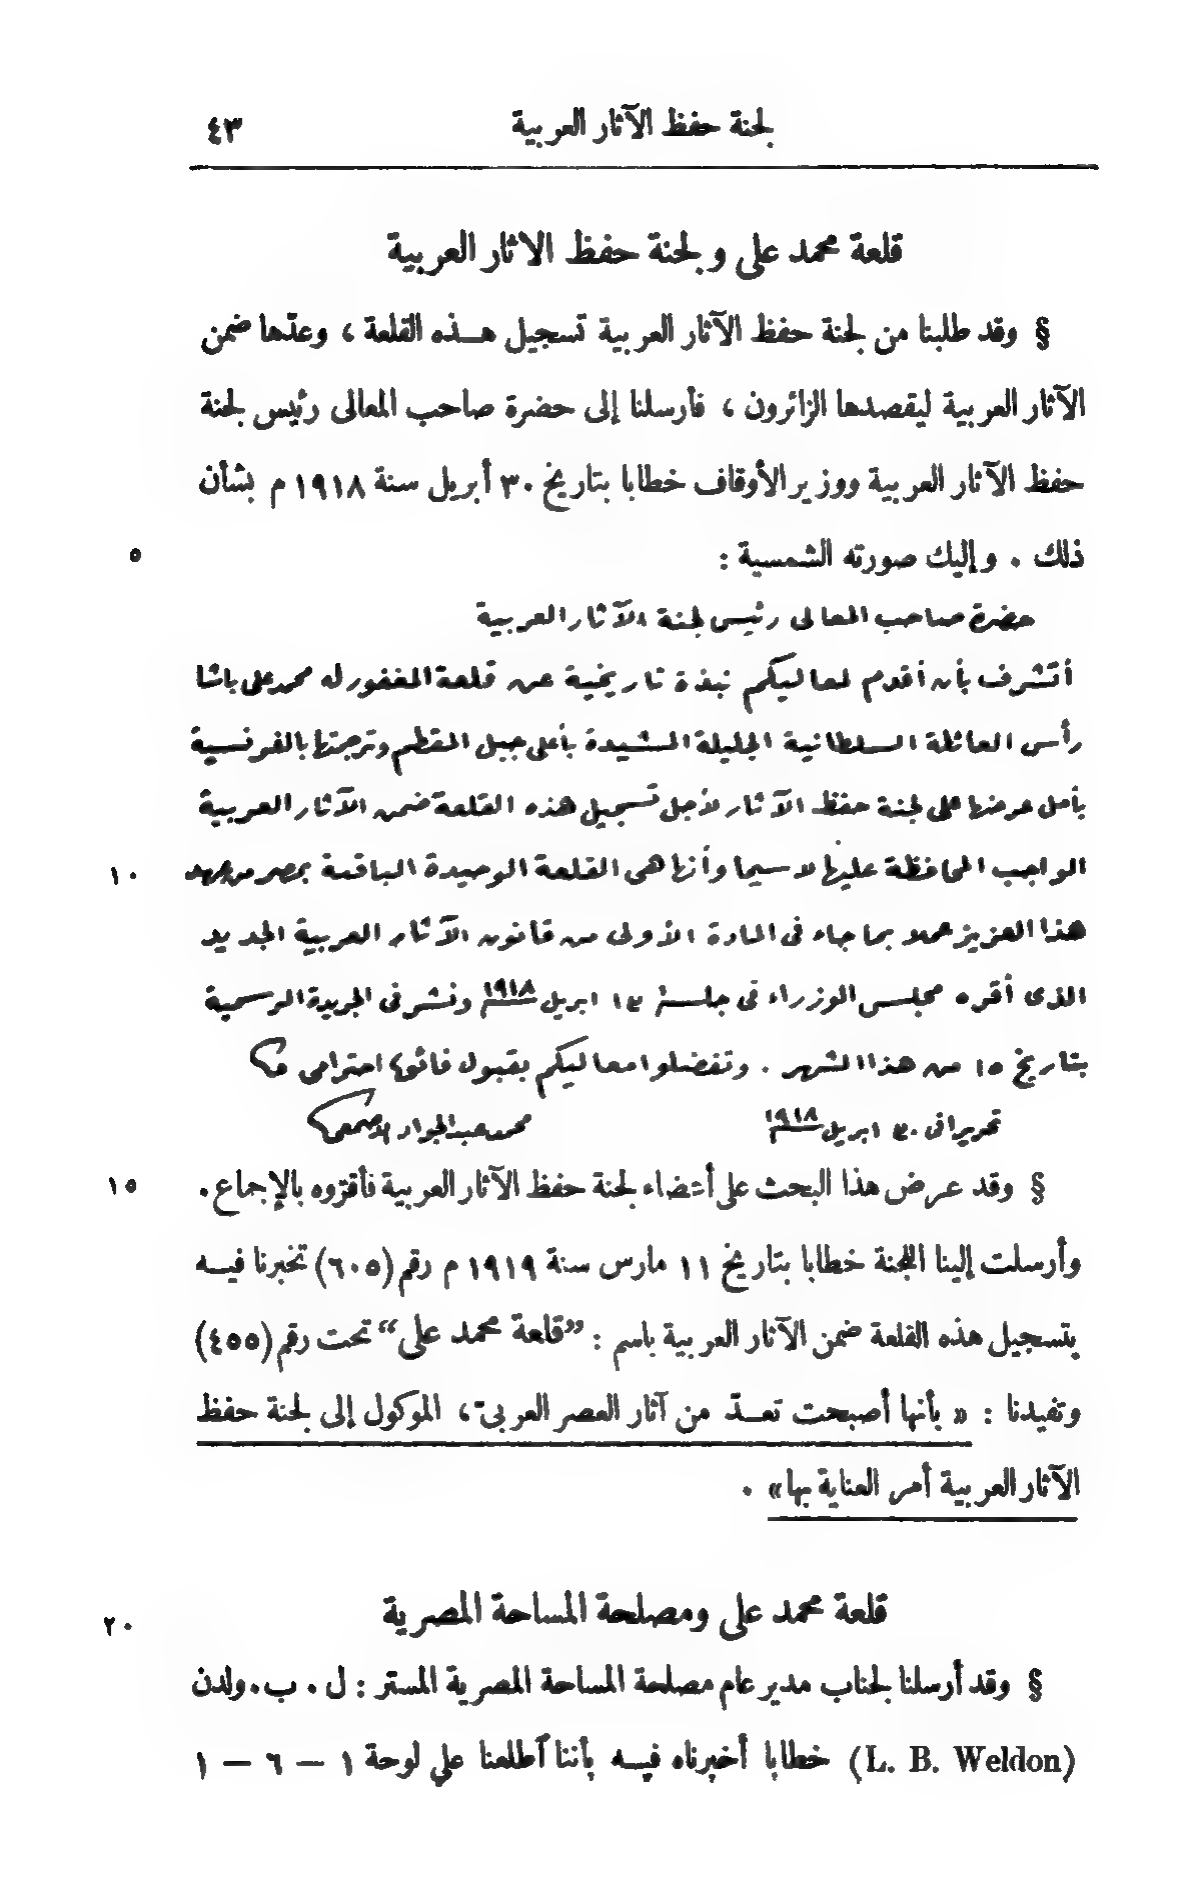 لجنة حفظ الآثار العربية ٤٣
قلعة محمد على ولجنة حفظ الاثار العربية
§ وقد طلبنا من لجنة حفظ الآثار العربية تسجيل هــذه القلعة ، وعدّها ضمن
الآثار العربية ليقصدها الزائرون ، فأرسلنا إلى حضرة صاحب المعالى رئيس لجنة
حفظ الآثار العربية ووزير الأوقاف خطابا بتاريخ ٣٠ أبريل سنة ١٩١٨ م بشأن
ذلك . وإليك صورته الشمسية : ٥
حضرة صاحب المعالى رئيس لجنة الآثار العربية
أتشرف بأن أقدم لمعاليكم نبذة تاريخية عن قلعة المغفور له محمد على باشا
رأس العائلة السلطانية الجليلة المشيدة بأعلى جبل المقطم وترجمتها بالفرنسية
بأمل عرضها على لجنة حفظ الآثار لأجل تسجيل هذه القلعة ضمن الآثار العربية
الواجب المحافظة عليها لاسيما وأنها هى القلعة الوحيدة الباقية بمصر من عهد ١٠
هذا العزيز عملا بما جاء فى المادة الأولى من قانون الآثار العربية الجديد
الذى أقره مجلس الوزراء فى جلسة ١٣ ابريل ١٩١٨ ونشر فى الجريدة الرسمية
بتاريخ ١٥ من هذا الشهر . وتفضلوا معاليكم بقبول فائق احترامى
تحريرا فى ٣٠ ابريل ١٩١٨ محمد عبد الجواد الأصمعى
§ وقد عرض هذا البحث على أعضاء لجنة حفظ الآثار العربية فأقرّوه بالإجماع . ١٥
وأرسلت إلينا اللجنة خطابا بتاريخ ١١ مارس سنة ١٩١٩ م رقم (٦٠٥) تخبرنا فيــه
بتسجيل هذه القلعة ضمن الآثار العربية باسم : ”قلعة محمد على“ تحت رقم (٤٥٥)
وتفيدنا : « بأنها أصبحت تعــدّ من آثار العصر العربىّ ، الموكول إلى لجنة حفظ
الآثار العربية أمر العناية بها » .
قلعة محمد على ومصلحة المساحة المصرية ٢٠
§ وقد أرسلنا لجناب مدير عام مصلحة المساحة المصرية المستر : ل . ب . ولدن
(L. B. Weldon) خطابا أخبرناه فيــه بأننا آطلعنا على لوحة ١ – ٦ – ١